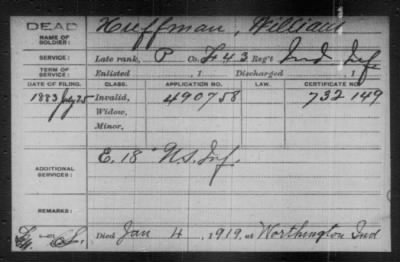 DEAD
NAME OF SOLDIER: Huffman, William
SERVICE: Late rank, P Co. F 43 Reg't Ind Inf
TERM OF SERVICE: Enlisted , 1 Discharged , 1
DATE OF FILING. CLASS. APPLICATION NO. LAW. CERTIFICATE NO.
1883 July 25 Invalid, 490758 732149
Widow,
Minor,
ADDITIONAL SERVICES: E. 18" U.S. Inf.
REMARKS:
Died Jan 4, 1919, at Worthington Ind